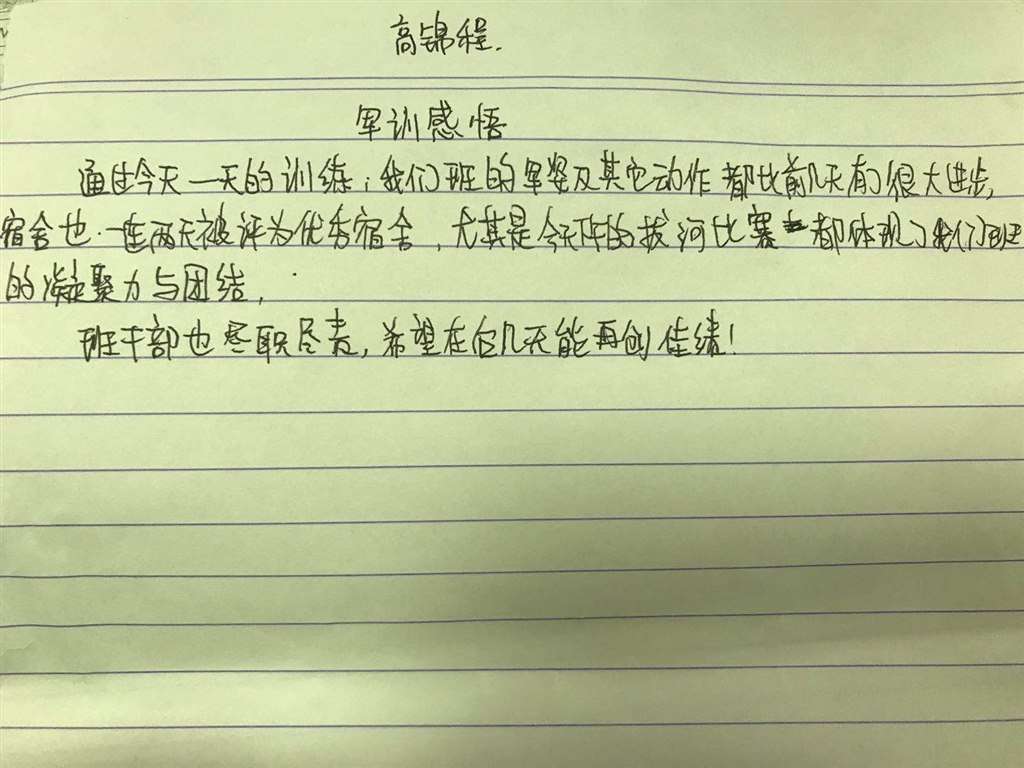 高锦程.
军训感悟
通过今天一天的训练,我们班的军姿及其它动作都比前几天有了很大进步,
宿舍也一连两天被评为优秀宿舍,尤其是今天下午的拔河比赛都体现了我们班
的凝聚力与团结,
班干部也尽职尽责,希望在后几天能再创佳绩!